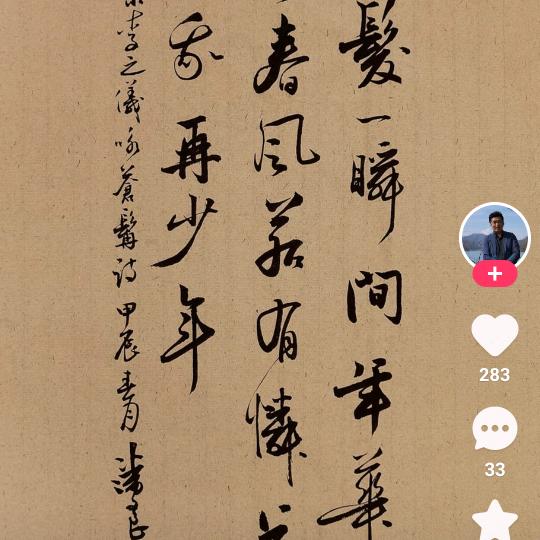 髮一瞬間年華
春風若有憐
我再少年
李之儀咏蒼髯诗甲辰春月潘良
283
33